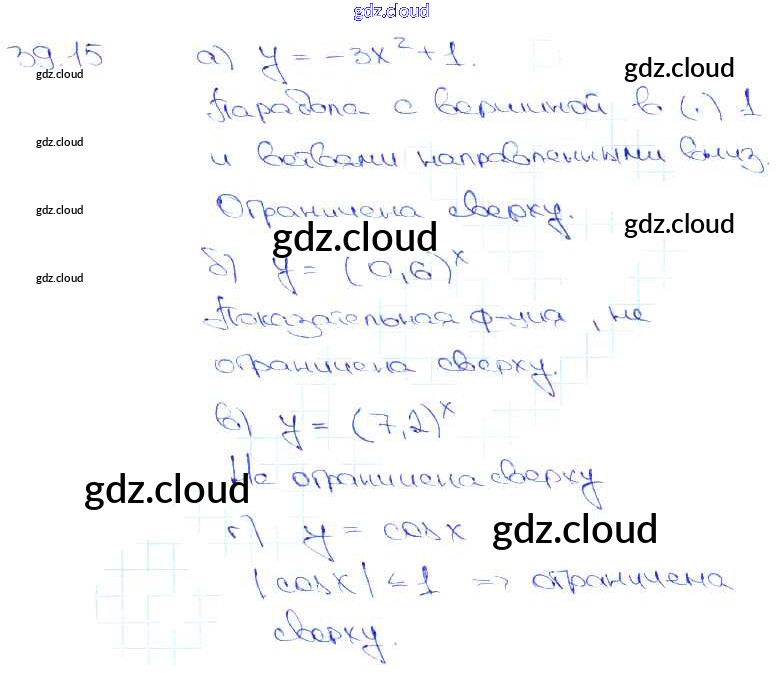 gdz.cloud
39.15 а) y = -3x² + 1.
gdz.cloud
gdz.cloud
Парабола с вершиной в (.) 1
gdz.cloud
и ветвами направленными вниз.
Ограничена сверху.
gdz.cloud
gdz.cloud
gdz.cloud
б) y = (0,6)ˣ
gdz.cloud
Показательная ф-ция, не
ограничена сверху.
в) y = (7,2)ˣ
Не ограничена сверху
gdz.cloud
г) y = cosx
gdz.cloud
|cosx| ≤ 1 => ограничена
сверху.